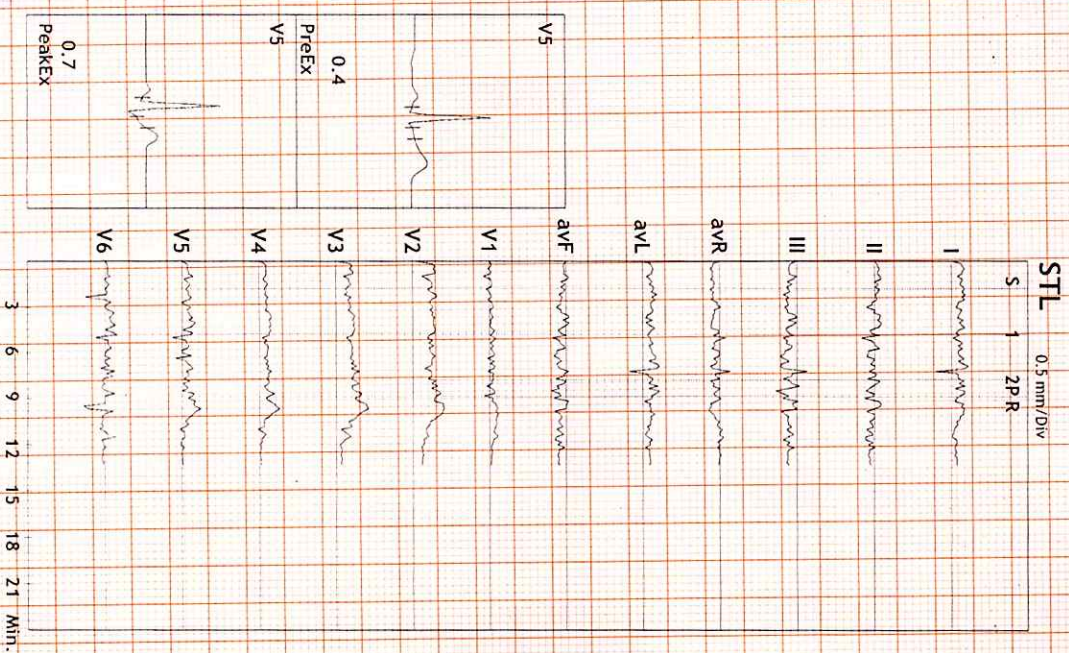 STL 0.5 mm/Div
S 1 2P R
I
II
III
avR
avL
avF
V1
V2
V3
V4
V5
V6
3 6 9 12 15 18 21 Min.
V5
0.4
PreEx
V5
0.7
PeakEx